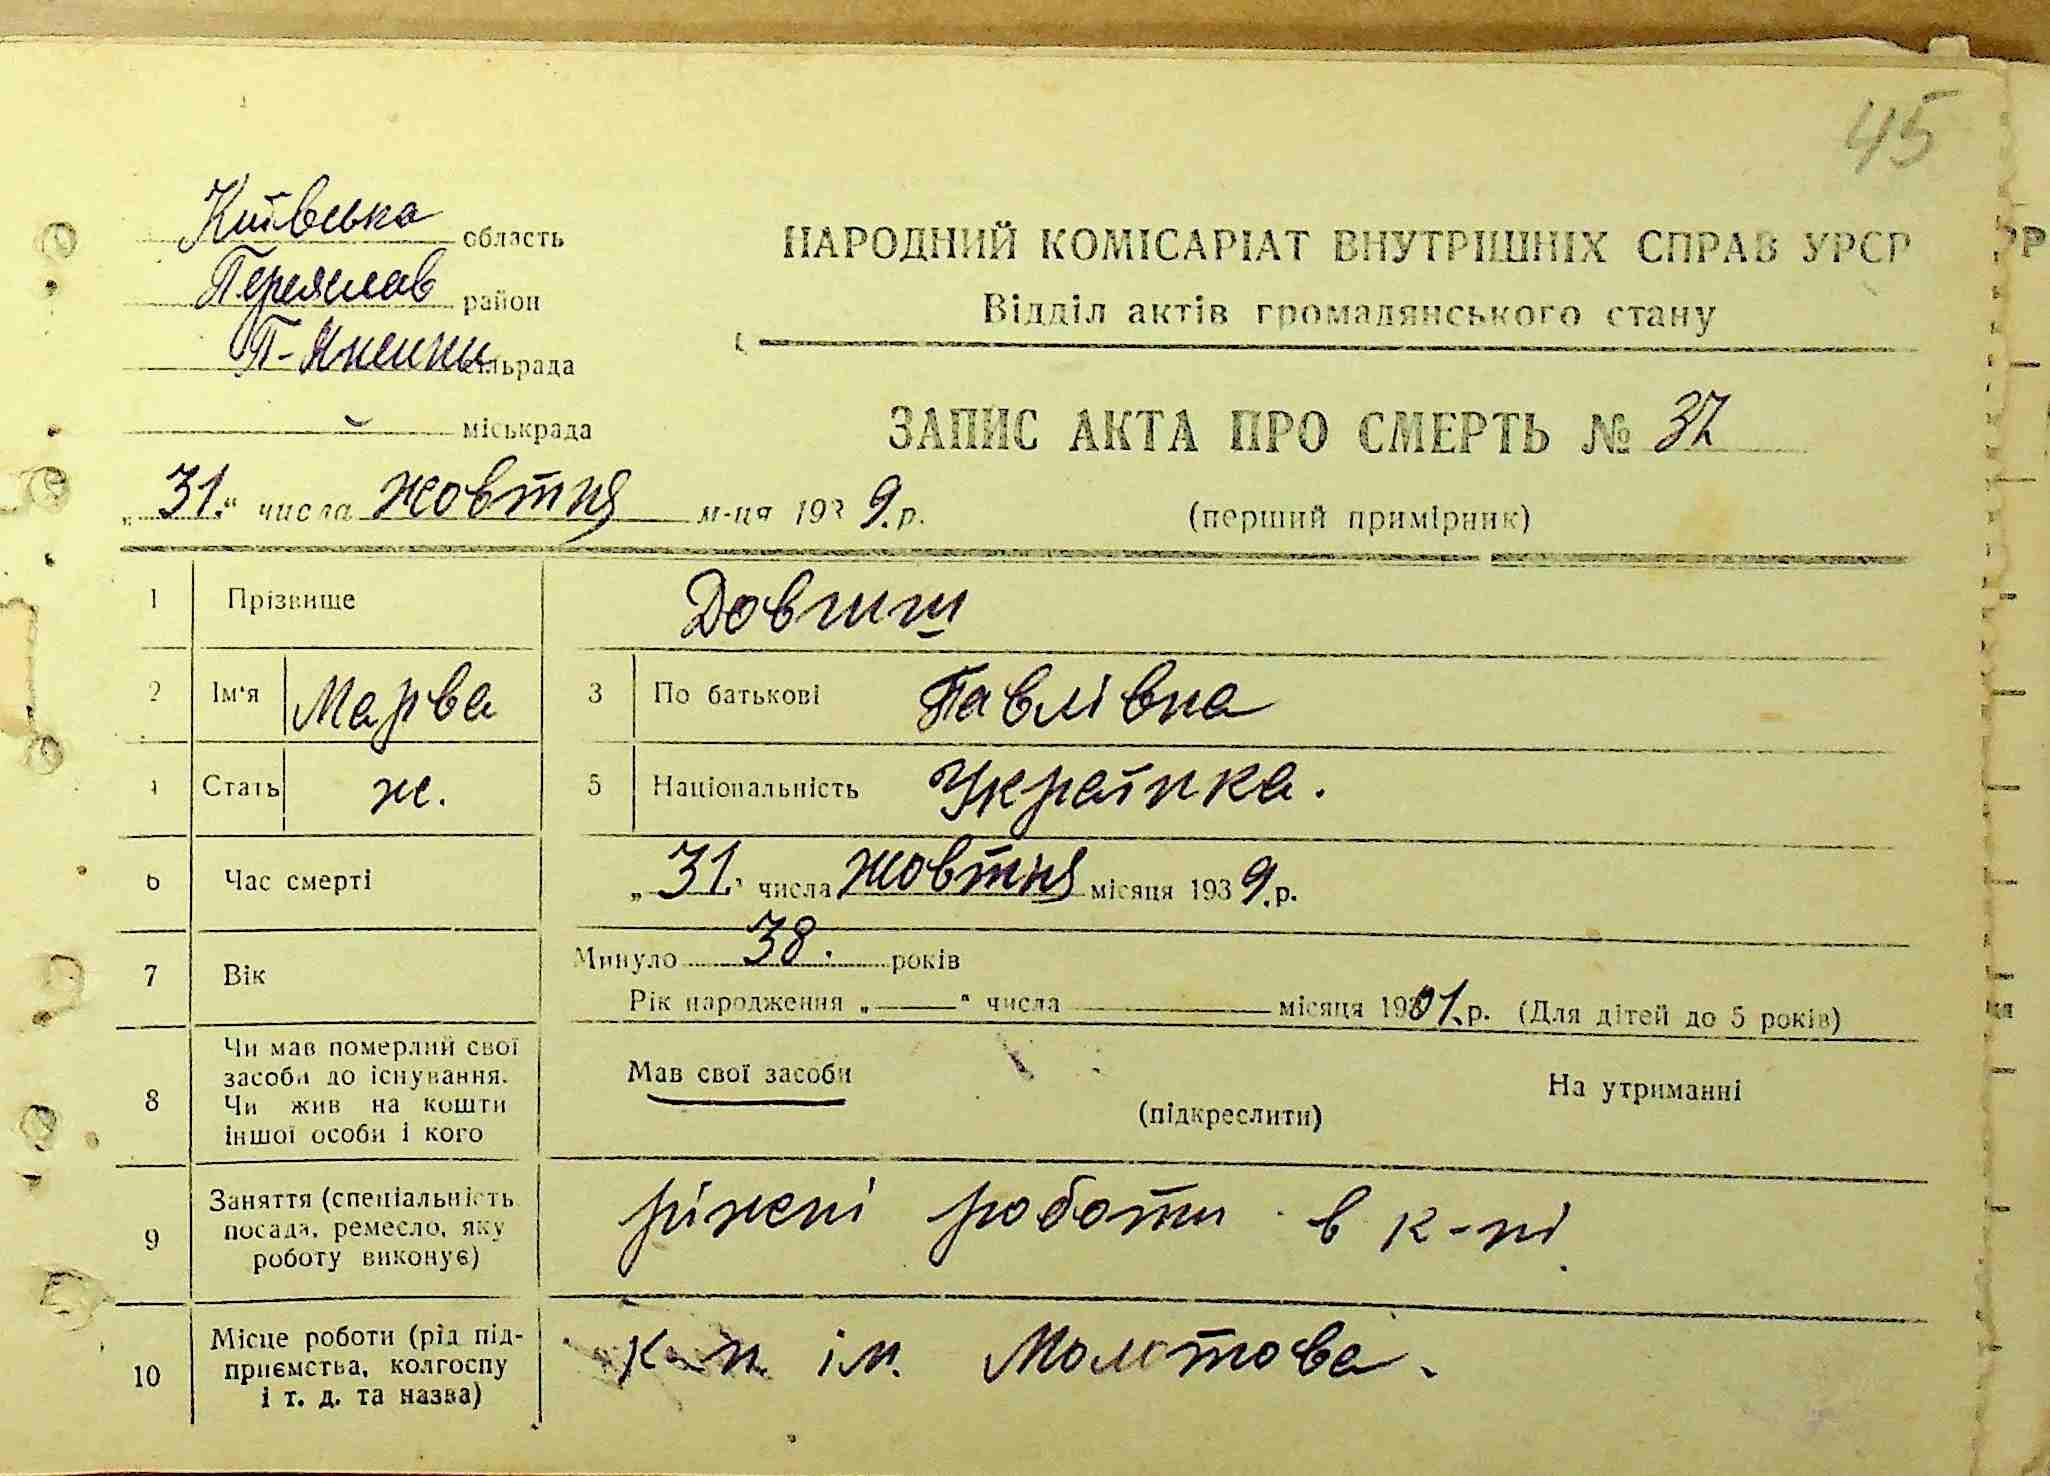 45
Київська область
Переяслав район
сільрада
міськрада
НАРОДНИЙ КОМІСАРІАТ ВНУТРІШНІХ СПРАВ УРСР
Відділ актів громадянського стану
ЗАПИС АКТА ПРО СМЕРТЬ № 37
(перший примірник)
„31.“ числа жовтня м-ця 1939.р.
1 Прізвище Довгиш
2 Ім'я Марва 3 По батькові Павлівна
4 Стать ж. 5 Національність Українка.
6 Час смерті „31.“ числа жовтня місяця 1939.р.
7 Вік Минуло 38. років
Рік народження „—“ числа — місяця 1901.р. (Для дітей до 5 років)
8 Чи мав померлий свої
засоби до існування.
Чи жив на кошти
іншої особи і кого
Мав свої засоби (підкреслити) На утриманні
9 Заняття (спеціальність
посада, ремесло, яку
роботу виконує)
ріжні роботи в к-пі
10 Місце роботи (рід під-
приємства, колгоспу
і т. д. та назва)
к-п. ім. Молотова.